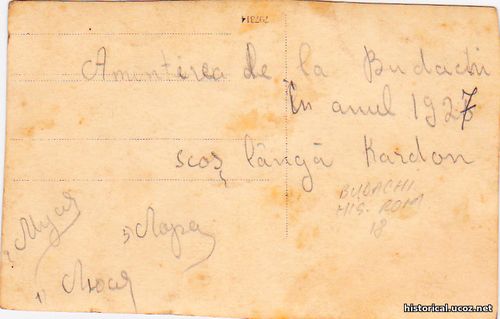 79784
Amintirea de la Budachi
în anul 1927
scos lângă Kardon
BUDACHI
HIS. ROM
18
Муся
5) Лора
1) Люся
historical.ucoz.net